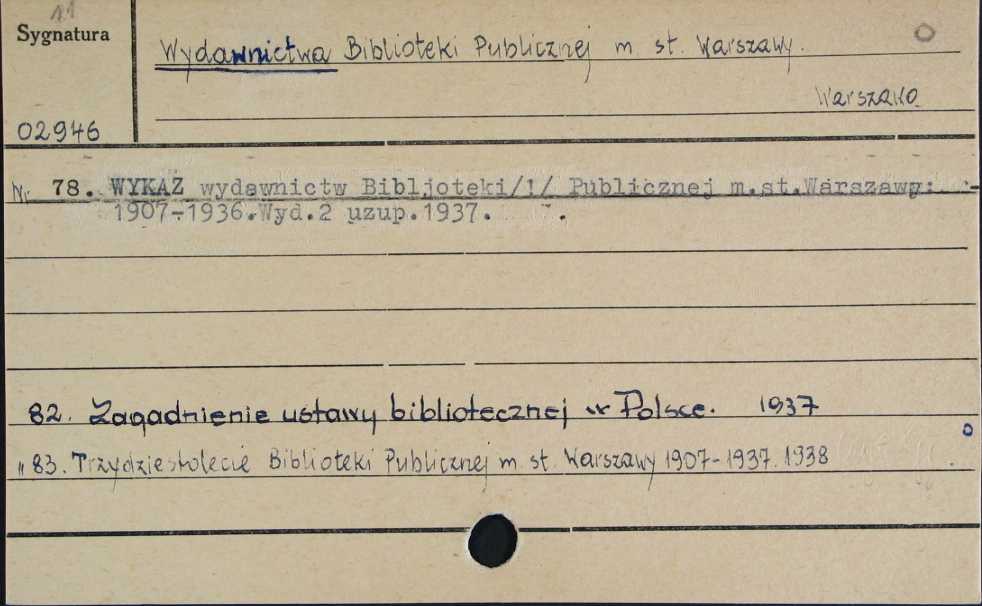 11
Sygnatura
Wydawnictwa Biblioteki Publicznej m. st. Warszawy.
Warszawa
02946
Nr 78. WYKAZ wydawnictw Bibljoteki/!/ Publicznej m.st.Warszawy:
1907-1936.Wyd.2 uzup.1937.
82. Zagadnienie ustawy bibliotecznej w Polsce. 1937
" 83. Trzydziestolecie Biblioteki Publicznej m. st. Warszawy 1907-1937. 1938